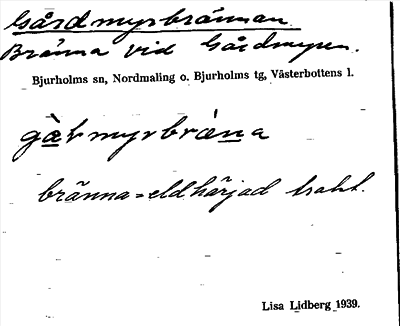 Gårdmyrbrännan.
Bränna vid Gårdmyren.
Bjurholms sn, Nordmaling o. Bjurholms tg, Västerbottens l.
myrbräna
bränna = eldhärjad trakt.
Lisa Lidberg 1939.